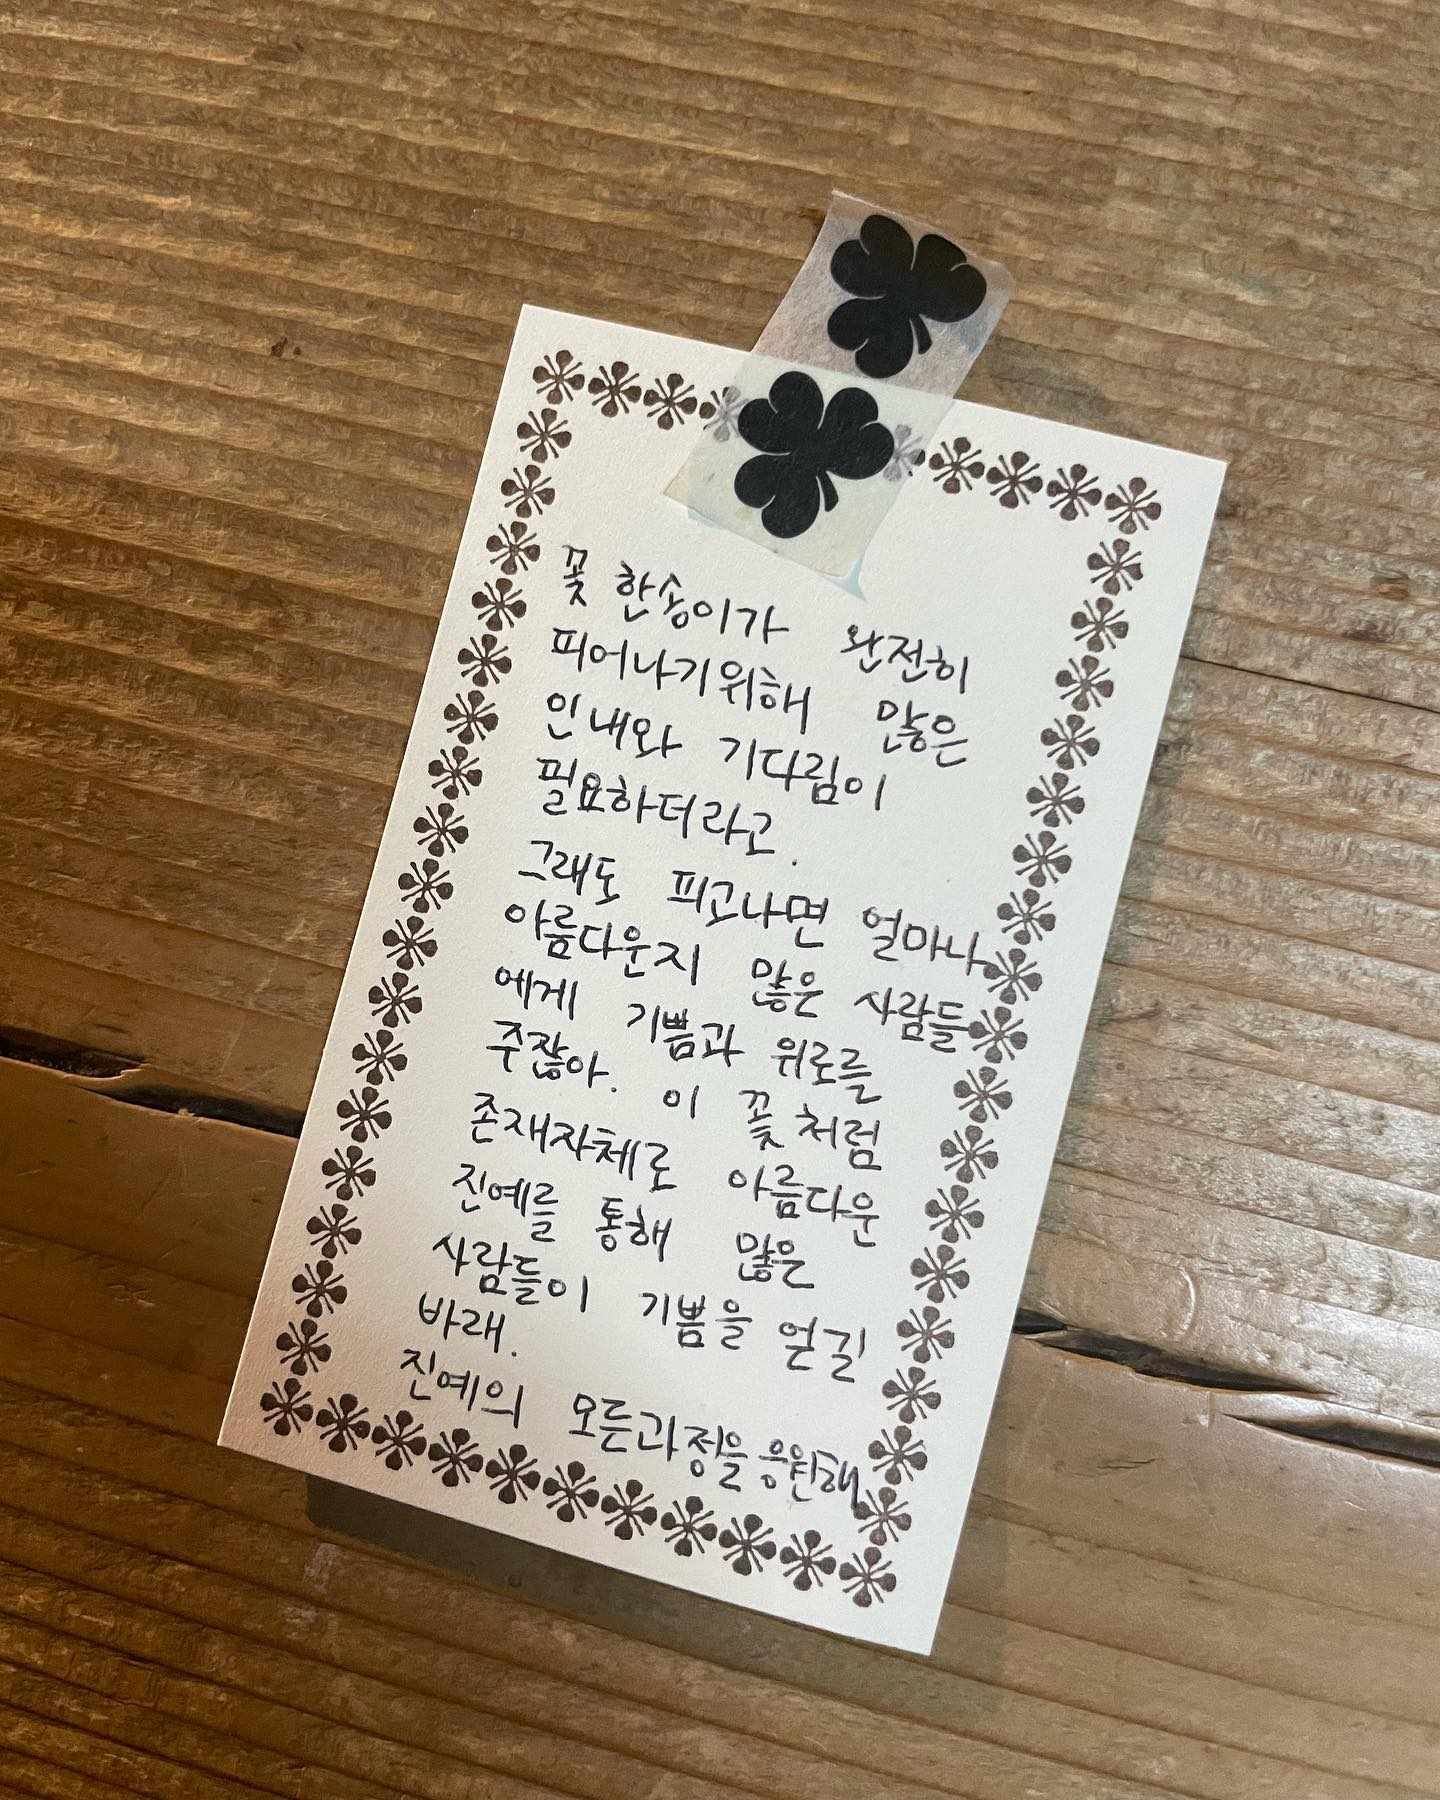 꽃 한송이가 완전히
피어나기위해 많은
인내와 기다림이
필요하더라고.
그래도 피고나면 얼마나
아름다운지 많은 사람들
에게 기쁨과 위로를
주잖아. 이 꽃처럼
존재자체로 아름다운
진예를 통해 많은
사람들이 기쁨을 얻길
바래.
진예의 모든과정을 응원해